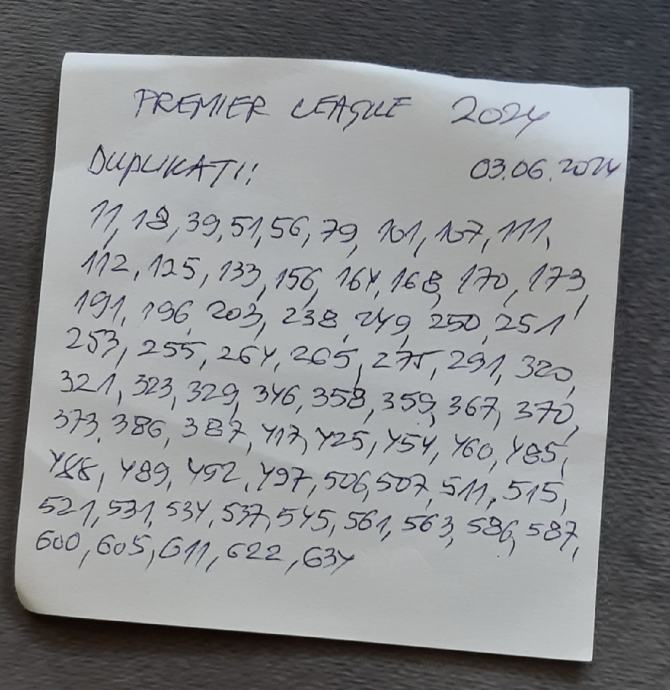 PREMIER LEAGUE 2024
DUPLIKATI: 03.06.2024
11, 18, 39, 51, 56, 79, 101, 107, 111,
112, 125, 133, 156, 164, 168, 170, 173,
191, 196, 203, 238, 249, 250, 251
253, 255, 264, 265, 275, 291, 320,
321, 323, 329, 346, 358, 359, 367, 370,
373, 386, 387, 417, 425, 454, 460, 485,
488, 489, 492, 497, 506, 507, 511, 515,
521, 531, 534, 537, 545, 561, 563, 586, 587,
600, 605, 611, 622, 634